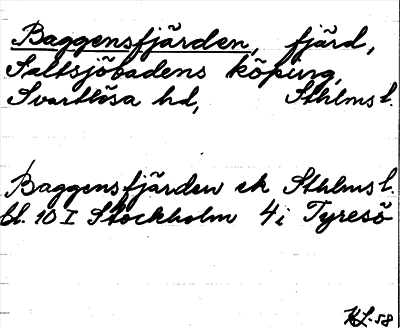 Baggensfjärden, fjärd,
Saltsjöbadens köping,
Svartlösa hd, Sthlms l.
Baggensfjärden ek Sthlms l.
bl. 10 I Stockholm 4i Tyresö
KL-58